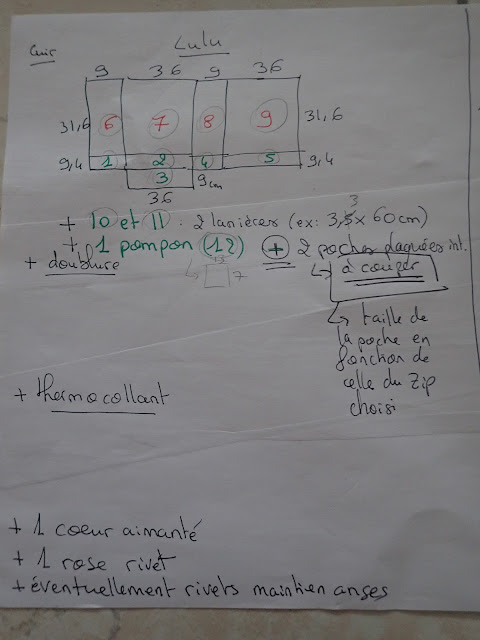 Cuir
Lulu
9 36 9 36
31,6 6 7 8 9 31,6
9,4 1 2 4 5 9,4
3 9cm
36
+ 10 et 11. 2 lanières (ex: 3,3x 60cm)
+ 1 pompon (12) + 2 poches plaquées int.
+ doublure
7
à couper
↳ taille de
la poche en
fonction de
celle du Zip
choisi
+ thermocollant
+ 1 coeur aimanté
+ 1 rose rivet
+ éventuellement rivets maintien anses